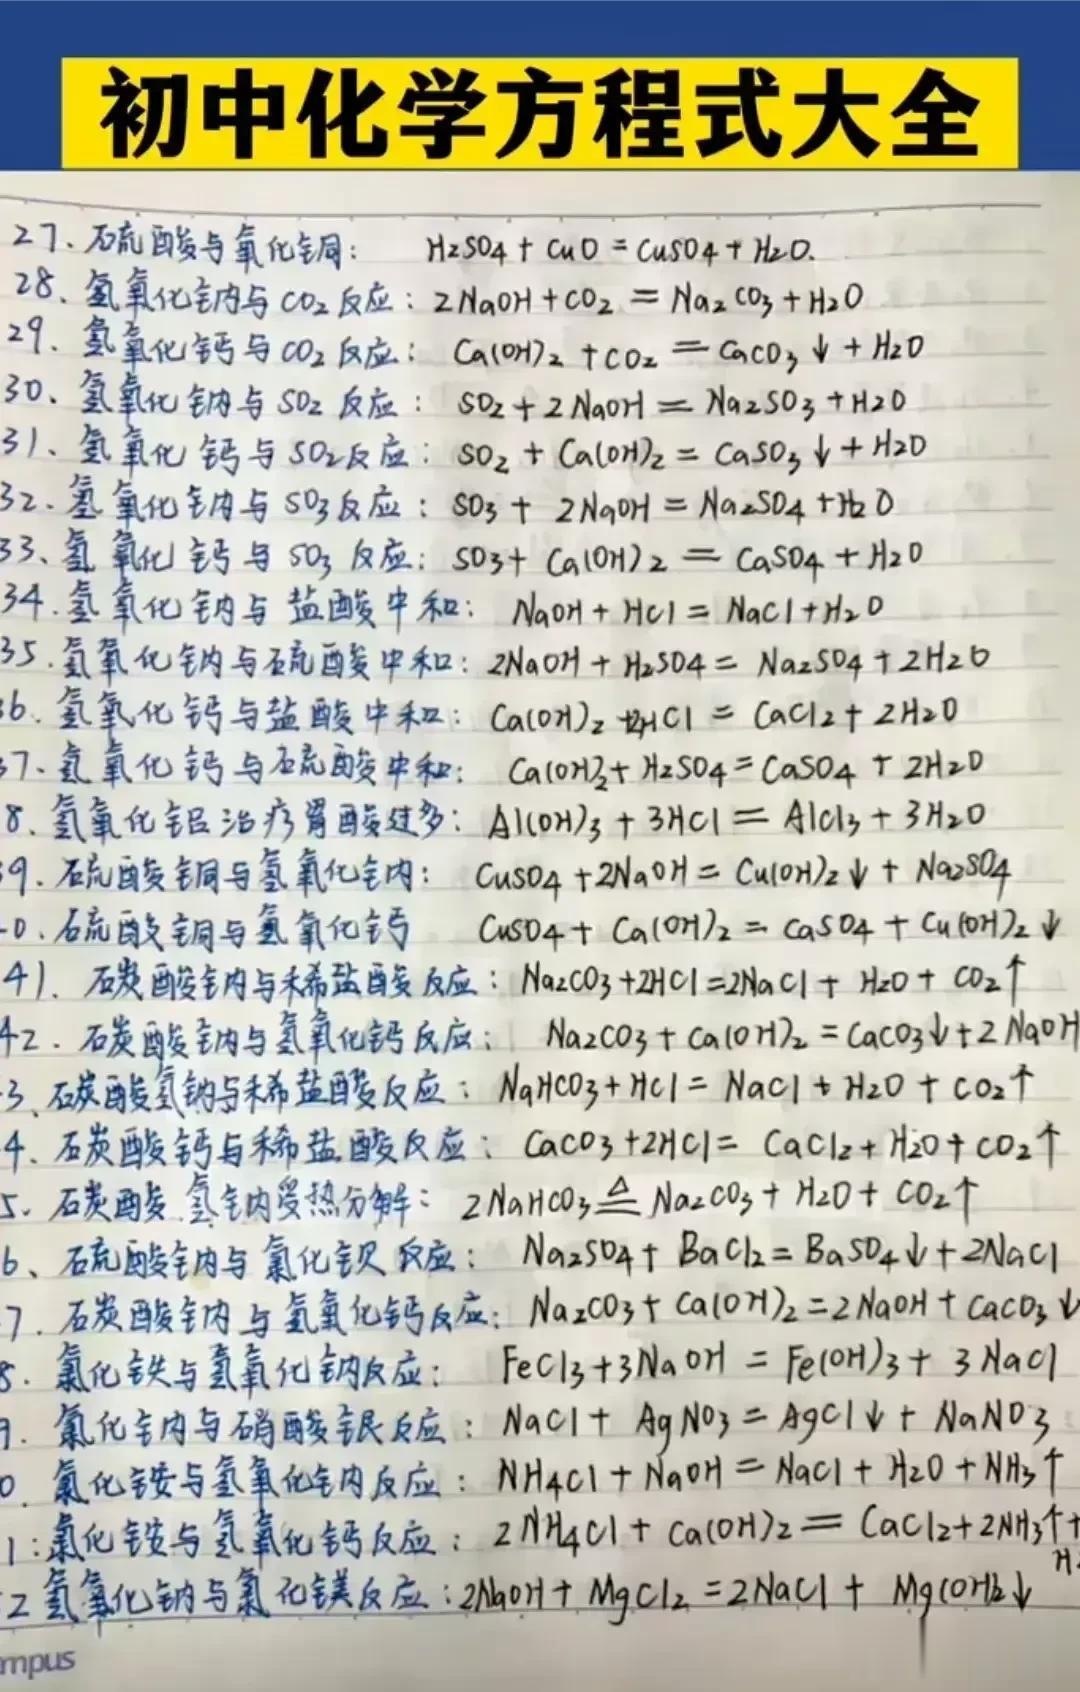 初中化学方程式大全
27、硫酸与氧化铜: H₂SO₄ + CuO = CuSO₄ + H₂O.
28、氢氧化钠与CO₂反应: 2NaOH + CO₂ = Na₂CO₃ + H₂O
29、氢氧化钙与CO₂反应: Ca(OH)₂ + CO₂ = CaCO₃↓ + H₂O
30、氢氧化钠与SO₂反应: SO₂ + 2NaOH = Na₂SO₃ + H₂O
31、氢氧化钙与SO₂反应: SO₂ + Ca(OH)₂ = CaSO₃↓ + H₂O
32、氢氧化钠与SO₃反应: SO₃ + 2NaOH = Na₂SO₄ + H₂O
33、氢氧化钙与SO₃反应: SO₃ + Ca(OH)₂ = CaSO₄ + H₂O
34.氢氧化钠与盐酸中和: NaOH + HCl = NaCl + H₂O
35.氢氧化钠与硫酸中和: 2NaOH + H₂SO₄ = Na₂SO₄ + 2H₂O
36.氢氧化钙与盐酸中和: Ca(OH)₂ + 2HCl = CaCl₂ + 2H₂O
7.氢氧化钙与硫酸中和: Ca(OH)₂ + H₂SO₄ = CaSO₄ + 2H₂O
8.氢氧化铝治疗胃酸过多: Al(OH)₃ + 3HCl = AlCl₃ + 3H₂O
9.硫酸铜与氢氧化钠: CuSO₄ + 2NaOH = Cu(OH)₂↓ + Na₂SO₄
0.硫酸铜与氢氧化钙 CuSO₄ + Ca(OH)₂ = CaSO₄ + Cu(OH)₂↓
41、碳酸钠与稀盐酸反应: Na₂CO₃ + 2HCl = 2NaCl + H₂O + CO₂↑
42.碳酸钠与氢氧化钙反应: Na₂CO₃ + Ca(OH)₂ = CaCO₃↓ + 2NaOH
3、碳酸氢钠与稀盐酸反应: NaHCO₃ + HCl = NaCl + H₂O + CO₂↑
4、碳酸钙与稀盐酸反应: CaCO₃ + 2HCl = CaCl₂ + H₂O + CO₂↑
5、碳酸氢钠受热分解: 2NaHCO₃ ≜ Na₂CO₃ + H₂O + CO₂↑
6、硫酸钠与氯化钡反应: Na₂SO₄ + BaCl₂ = BaSO₄↓ + 2NaCl
7.碳酸钠与氢氧化钙反应: Na₂CO₃ + Ca(OH)₂ = 2NaOH + CaCO₃↓
8.氯化铁与氢氧化钠反应: FeCl₃ + 3NaOH = Fe(OH)₃ + 3NaCl
9.氯化钠与硝酸银反应: NaCl + AgNO₃ = AgCl↓ + NaNO₃
0.氯化铵与氢氧化钠反应: NH₄Cl + NaOH = NaCl + H₂O + NH₃↑
1:氯化铵与氢氧化钙反应: 2NH₄Cl + Ca(OH)₂ = CaCl₂ + 2NH₃↑ +
2氢氧化钠与氯化镁反应: 2NaOH + MgCl₂ = 2NaCl + Mg(OH)₂↓
mpus